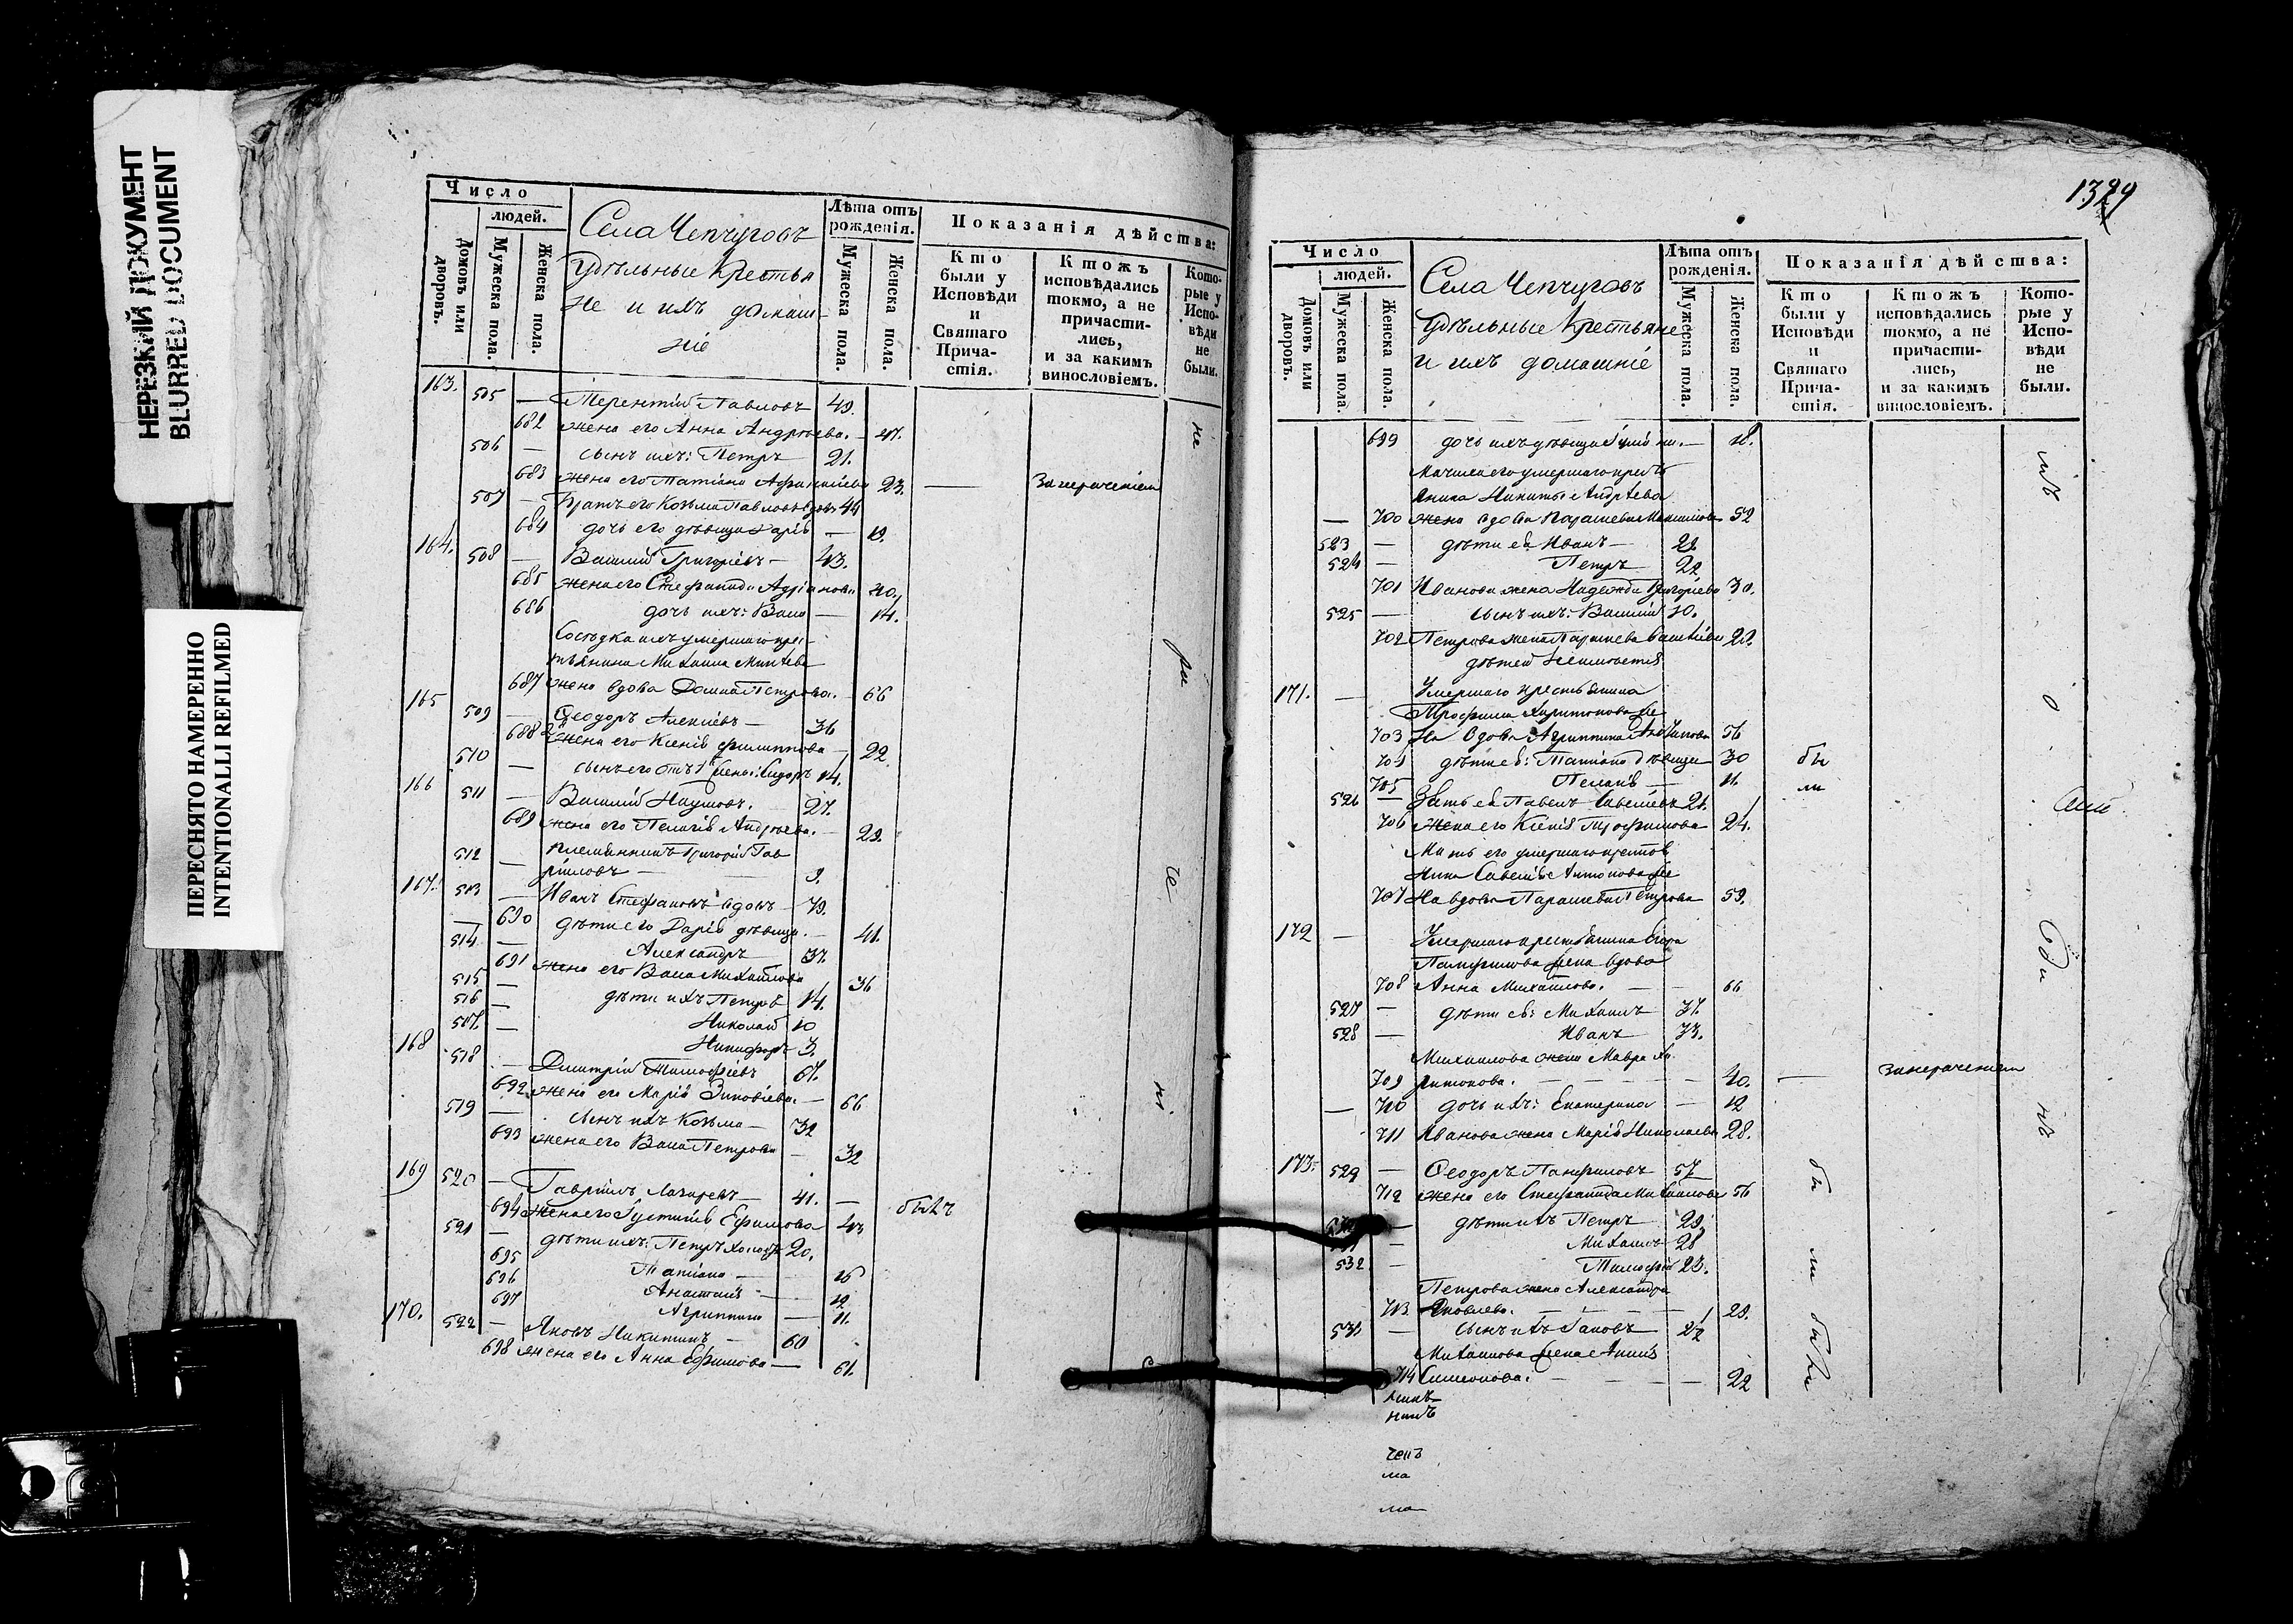 НЕРЕЗКИЙ ДОКУМЕНТ
BLURRED DOCUMENT
ПЕРЕСНЯТО НАМЕРЕННО
INTENTIONALLI REFILMED
Число
людей.
Домовъ или дворовъ.
Мужеска пола.
Женска пола.
Села Чепчуговъ
Удѣльные Крестья
не и ихъ домаш-
ніе
Лѣта отъ рожденія.
Мужеска пола.
Женска пола.
Показанія дѣйства:
Кто были у Исповѣди и Святаго Прича-стія.
Ктожъ исповѣдались токмо, а не причасти-лись, и за какимъ винословіемъ.
Кото-рые у Испо-вѣди не были.
163. 505 — Терентій Павловъ 49.
682 жена его Анна Андреева. — 47.
506 — сынъ ихъ: Петръ 21.
683 жена его Татіана 23. —
507 — Братъ его Козьма Павловъ вдовъ 44
684 дочь его дѣвица Дарія — 19.
164. 508 — Василій Григорьевъ — 43.
685 жена его Стефанида Адріанова 40.
686 дочь ихъ: Васса — 14.
Сосѣдка ихъ умершаго крес-
тьянина Михаила
687 жена вдова Домна Петрова. — 66
165 509 — Ѳеодоръ Алексіевъ — 36
688 жена его Ксенія Филиппова — 22
510 — сынъ его отъ 1 жены: Сидоръ 14.
166 511 — Василій Наумовъ. — 27.
689 жена его Пелагія Андреева. — 29.
512 племянникъ Григорій Гав
— ріиловъ — 9.
167. 513 — Иванъ Стефановъ вдовъ — 79.
690 дѣти его Дарія дѣвица. — 41.
514 — Александръ 37.
691 жена его Васса Михайлова 36
515 — дѣти ихъ Петръ 14.
516 — Николай 10
517. — Никифоръ 3.
168 518 — Димитрій Тимофѣевъ 67.
692 жена его Марія Зиновіева. — 66
519 — сынъ ихъ Козьма — 32
693 жена его Васса Петрова — 32
169 520 — Гавріилъ Лазаревъ — 41. — былъ
694 жена его Іустинія Ефимова 43
521 — дѣти ихъ: Петръ холостъ 20.
695 Татіана — 16
696 Анастасія — 12
697 Агриппина — 11.
170. 522 — Яковъ Никитинъ — 60
698 жена его Анна Ефимова — 61.
не
ра
че
ні
1329
Число
людей.
Домовъ или дворовъ.
Мужеска пола.
Женска пола.
Села Чепчуговъ
Удѣльные Крестьяне
и ихъ домашніе
Лѣта отъ рожденія.
Мужеска пола.
Женска пола.
Показанія дѣйства:
Кто были у Исповѣди и Святаго Прича-стія.
Ктожъ исповѣдались токмо, а не причасти-лись, и за какимъ винословіемъ.
Кото-рые у Испо-вѣди не были.
699 дочь ихъ дѣвица — 18.
Мачиха его умершаго кресть
янина Никиты Андреева
— 700 жена вдова Параскева Максимова 52
523 — дѣти ея Иванъ — 29.
524 — Петръ 22
701 Иванова жена Надежда Григорьева 30.
525 — сынъ ихъ: Василій 10.
702 Петрова жена Параскева 22.
дѣтей неимѣется
171. — Умершаго крестьянина
Трофима Харитонова же
703 на вдова Агриппина 56
704 дѣти ея: Татіана дѣвица 30 бы
705 Пелагія — 11. ли
526 — Зять ея Павелъ Савельевъ 21.
706 жена его Ксенія Трофимова 24.
Мать его умершаго крестья
нина Савелія Антонова же
707 на вдова Параскева Петрова 59.
172 — Умершаго крестьянина Егора
Памфилова жена вдова
708 Анна Михайлова. — — 66
527 — дѣти ея: Михаилъ 37.
528 — Иванъ 33.
Михаилова жена Мавра Ха
709 ритонова. — — — — 40. —
— 710 дочь ихъ: Екатерина — 12
711 Иванова жена Марія Николаева 28.
173. 529 — Ѳеодоръ Панфиловъ 57
712 жена его Стефанида Михайлова 56
— дѣти ихъ Петръ 29.
— Михаилъ 28
532 — Тимофей 23.
Петрова жена Александра
713 Яковлева. — — — — 29.
— сынъ ихъ Іаковъ
Михаилова жена Анисія
714 Симеонова. — — — — 22
бы ли бы